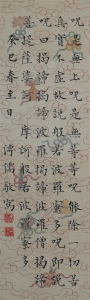 呪是無上呪是無等等呪能除一切苦
真實不虛故說般若波羅蜜多呪即說
呪曰揭諦揭諦波羅揭諦波羅僧揭諦
菩提薩婆訶 摩訶般若波羅蜜多
癸巳春日 溥儒敬寫